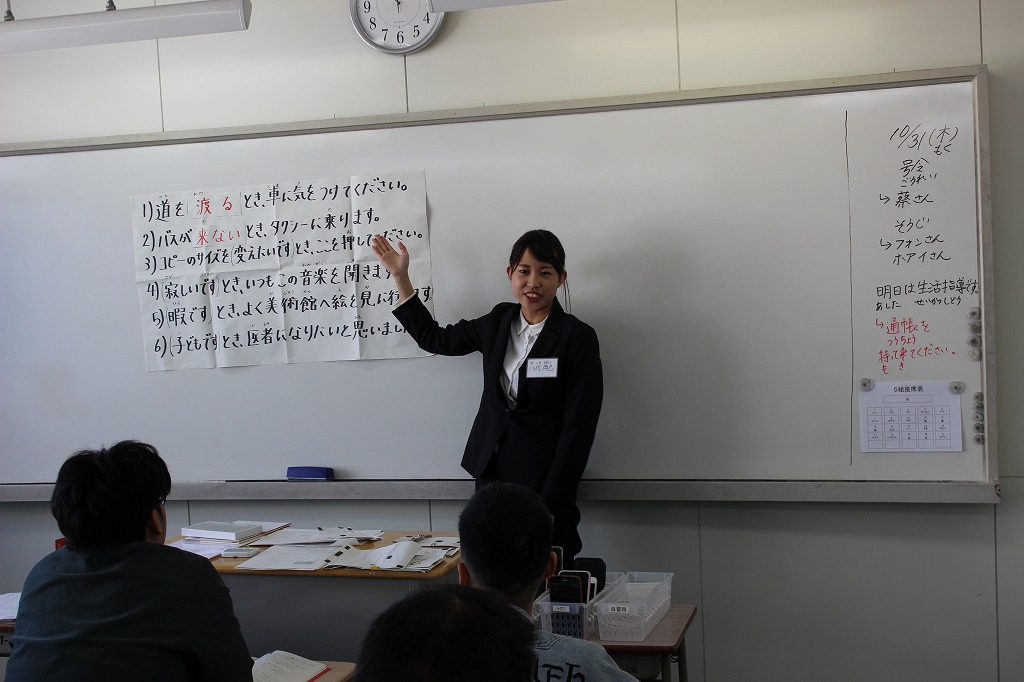 1)道を[渡る]とき、車に気をつけてください。
2)バスが[来ない]とき、タクシーに乗ります。
3)コピーのサイズを[変えたいです]とき、ここを押してください。
4)[寂しいです]とき、いつもこの音楽を聞きます
5)[暇です]とき、よく美術館へ絵を見に行きます。
6)[子どもです]とき、医者になりたいと思いまし
10/31(木)
もく
号令
ごうれい
↳蔡さん
そうじ
↳フォンさん
ホアイさん
明日は生活指導です。
あした せいかつしどう
↳通帳を
つうちょう
持って来てください。
も き
5組座席表